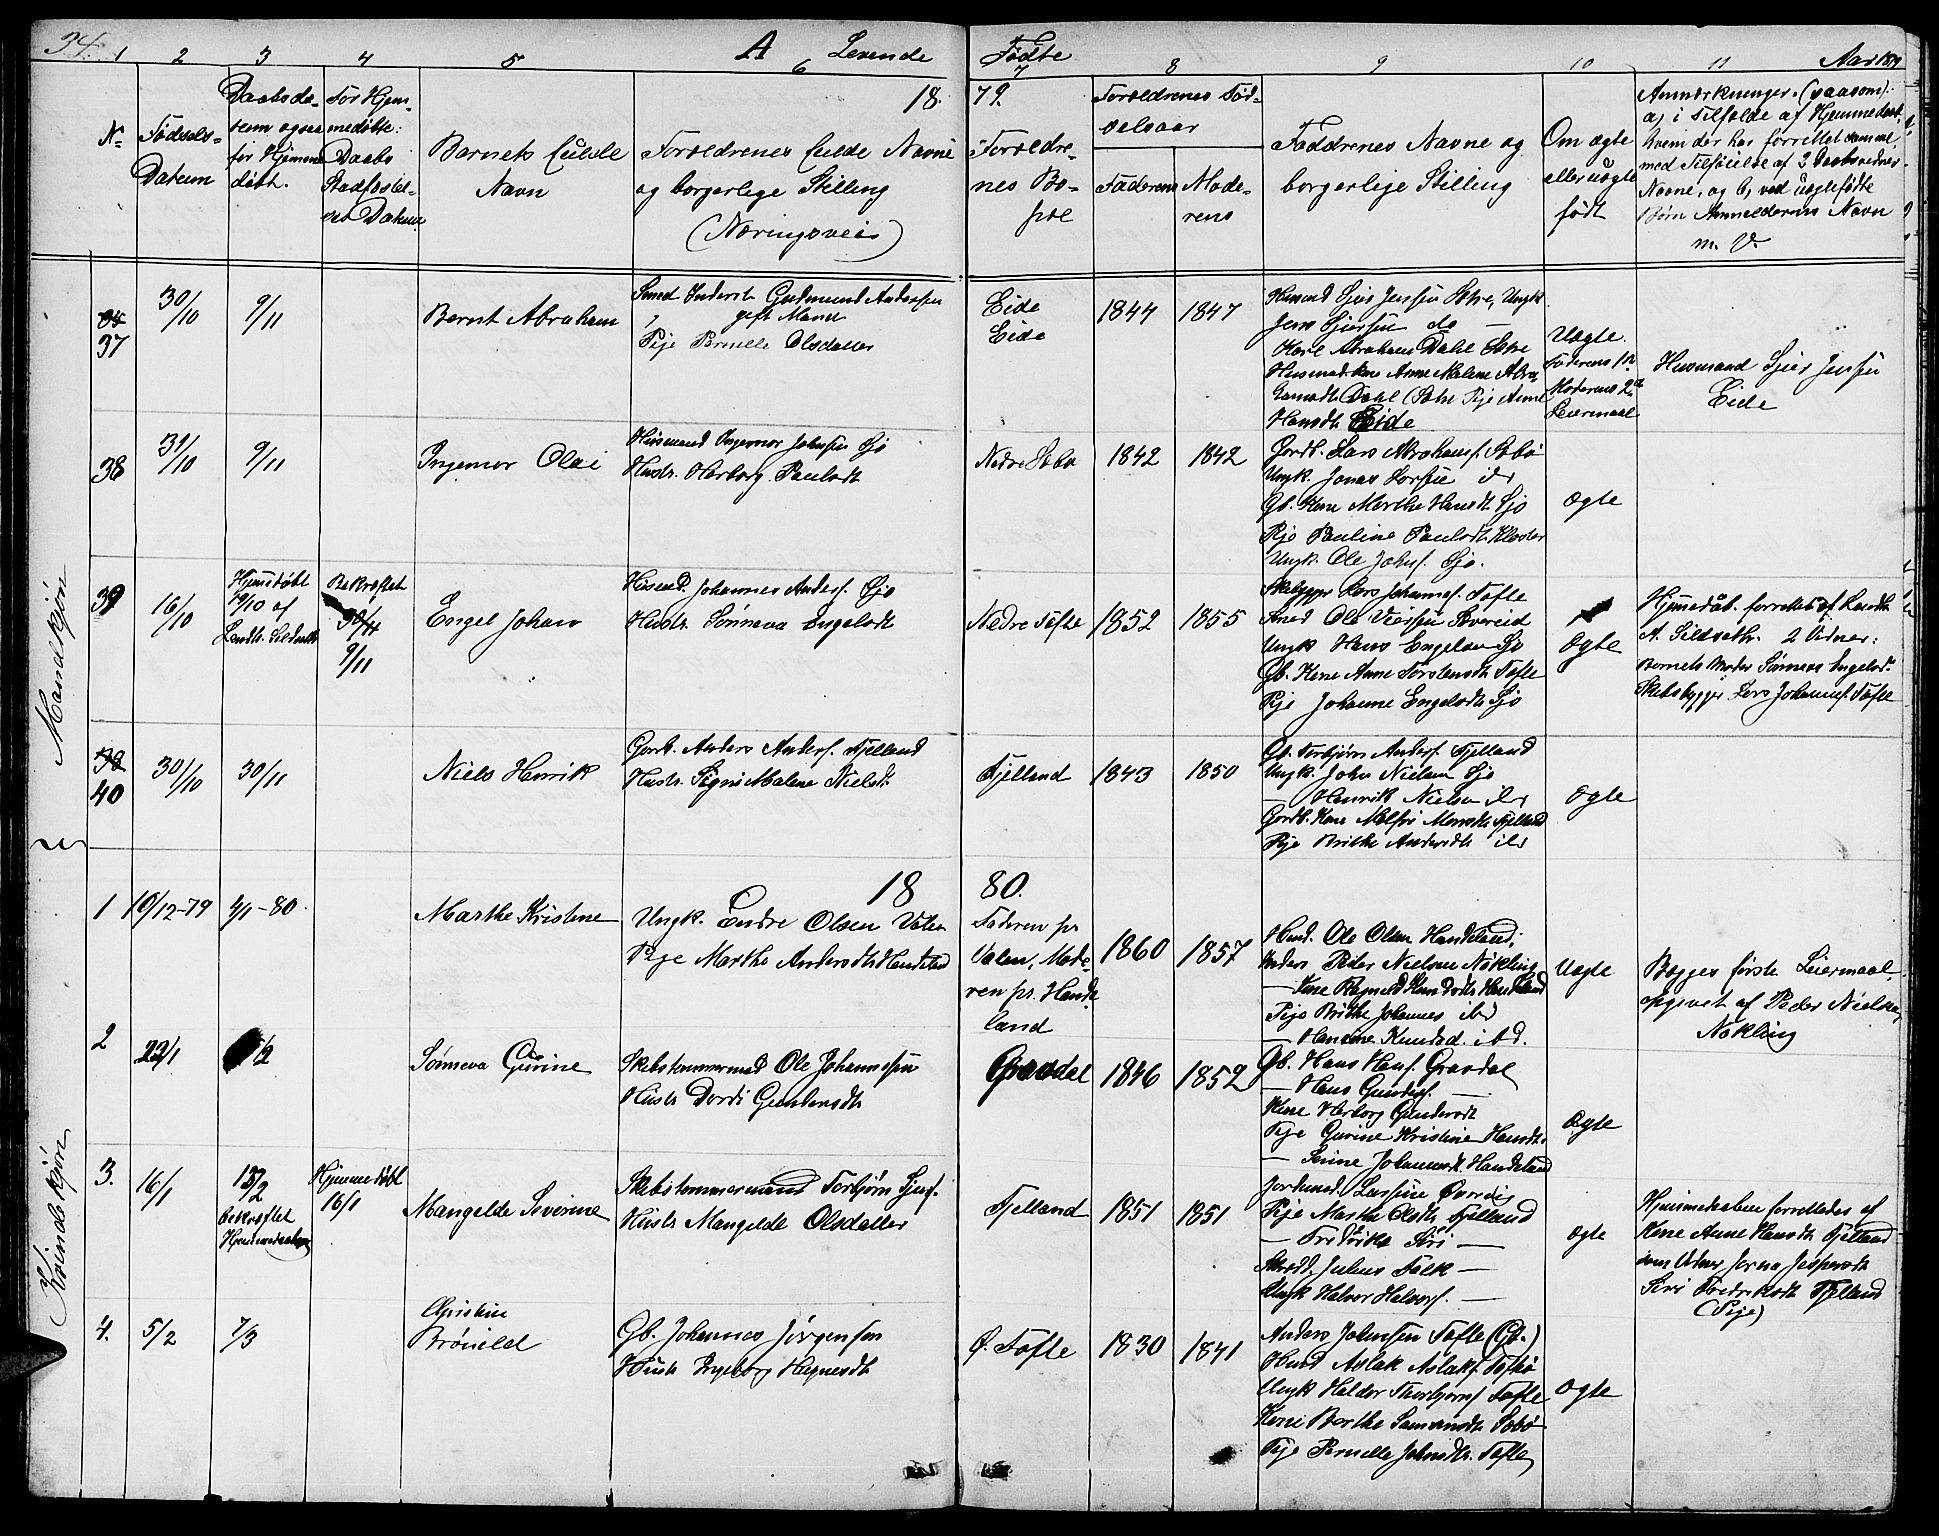 34.
A Levende Fødte
Aar 1879
1 2 3 4 5 6 7 8 9 10 11
18 79.
No
Fødsels-
Datum
Daabsda-
tum ogsaa
for Hjemme
døbt.
For Hjem-
medøbte:
Daabs
Stadfæstel-
ses Datum
Barnets fulde
Navn
Forældrenes fulde Navne
og borgerlige Stilling
(Næringsveis)
Forældre-
nes Bo-
pæl
Forældrenes Fød-
selsaar
Faderens
Mode-
rens
Faddrenes Navne og
borgerlige Stilling
Om ægte
eller uægte
født
Anmærkninger. (saasom):
a, i Tilfælde af Hjemmedaab,
hvem der har forrettet samme,
med Tilføielse af 2 Daabsvidners
Navne, og b, ved uægtefødte
Børn Anmelderens Navn
m. V.
Mandkjøn
37
30/10
9/11
Bernt Abraham
Gudmund Andersen
gift Mand
Pige Pernille Olsdatter
Eide
Eide
1844
1847
Husmd Sjur Jensen
Jens Sjursen do
Karl Abraham Dahl
Anne Malene
Dahl Pige Anne
Hansdtr Eide
Uægte.
Faderens 1ste
Modrens 2det
Leiermaal
Husmand Sjur Jensen
Eide
38
31/10
9/11
Ingemor Olai
Husmand Ingemor Johnsen Sjo
Hustr. Herborg Paulsdt
Nedre
1842
1842
Gordb. Lars Abrahams.
Ungk. Jonas Larsen
Gb. Kone Marthe Hansdt Sjo
Pige Pauline Paulsdt. Kloster
Ungk. Ole Johns. Sjo.
Ægte
39
16/10
Hjemedøbt
19/10 af
Bekræftet
9/11
Engel Johan
Husmd. Johannes Anders.
Hustr. Sønneva Engelsdt
Nedre Tofte
1852
1855
Lars Johannes. Tofte
Smed Ole
Ungk Hans Engelsen Sjo
Gb. Kone Anne Torstensdt Tofte
Pige Johanne Engelsdt Sjo
Ægte
Hjemedåb. forrettet af
A. 2 Vidner:
Barnets Moder Sønneva Engelsd.
Skibsbygger Lars Johannes. Tofte
40
30/10
30/11
Niels Henrik
Gordb. Anders Anders. Fjelland
Hustr. Signi Malene Nielsdt.
Fjelland
1843
1850
Gb. Torbjørn Anders. Fjelland
Ungk. John Nielsen Sjo
— Henrik Nielsen
Gordb. Kone Monsdt Fjelland
Pige Brithe Andersdt
Ægte
18 80.
Kvindekjøn
1
10/12-79
4/1-80.
Marthe Kristine
Ungk. Endre Olsen Valen
Pige Marthe Andersdtr Handeland
Faderen pr
Valen, Mode-
ren pr. Hande
land
1860
1857
Husmd. Ole Olsen Handeland,
Peder Nielsen Nøkling
— Kone Handeland
Pige Brithe Johannes ibd
— Hansine Knudsd. ibd.
Uægte
Begges første Leiermaal
opgivet af Peder Nielsen
Nøkling
2
22/1
Sønneva Gurine
Skibstømmermand Ole Johannessen
Hustr Dordi Gundersdt
Gravdal
1846
1852
Gb. Hans Hans. Gravdal
— Hans Gunders. —
Kone Herborg Gundersdt
Pige Gurine Kristine Hansdt.
— Johannesdt. Handeland
Ægte
3.
16/1
13/2
bekræftet
Hjemmedaaben
Hjemmedøbt
16/1
Mangelde Severine
Skibstømmermand Torbjørn
Hustr Mangelde Olsdatter
Fjelland
1851
1851
Larsen
Pige Marthe Olsdt. Fjelland
— Siri —
Julius Falk —
Ungk Halvor Halvors. —
Ægte
Hjemmedaaben forrettedes af
Kone Anne Hansdt Fjelland
som Vidner Jespersdt
Siri Fredriksdt Fjelland
(Pige)
4.
5/2
7/3
Christine
Brønild
Gb. Johannes Jørgensen
Hustr Ingeborg
Ø. Tofte
1830
1841
Anders Johnsen Tofte (Gb.)
Husmd Aslak Aslaks.
Ungk Haldor Thorbjørns. Tofte
Kone Berthe
Pige Pernille Johnsdt. Tofte
Ægte